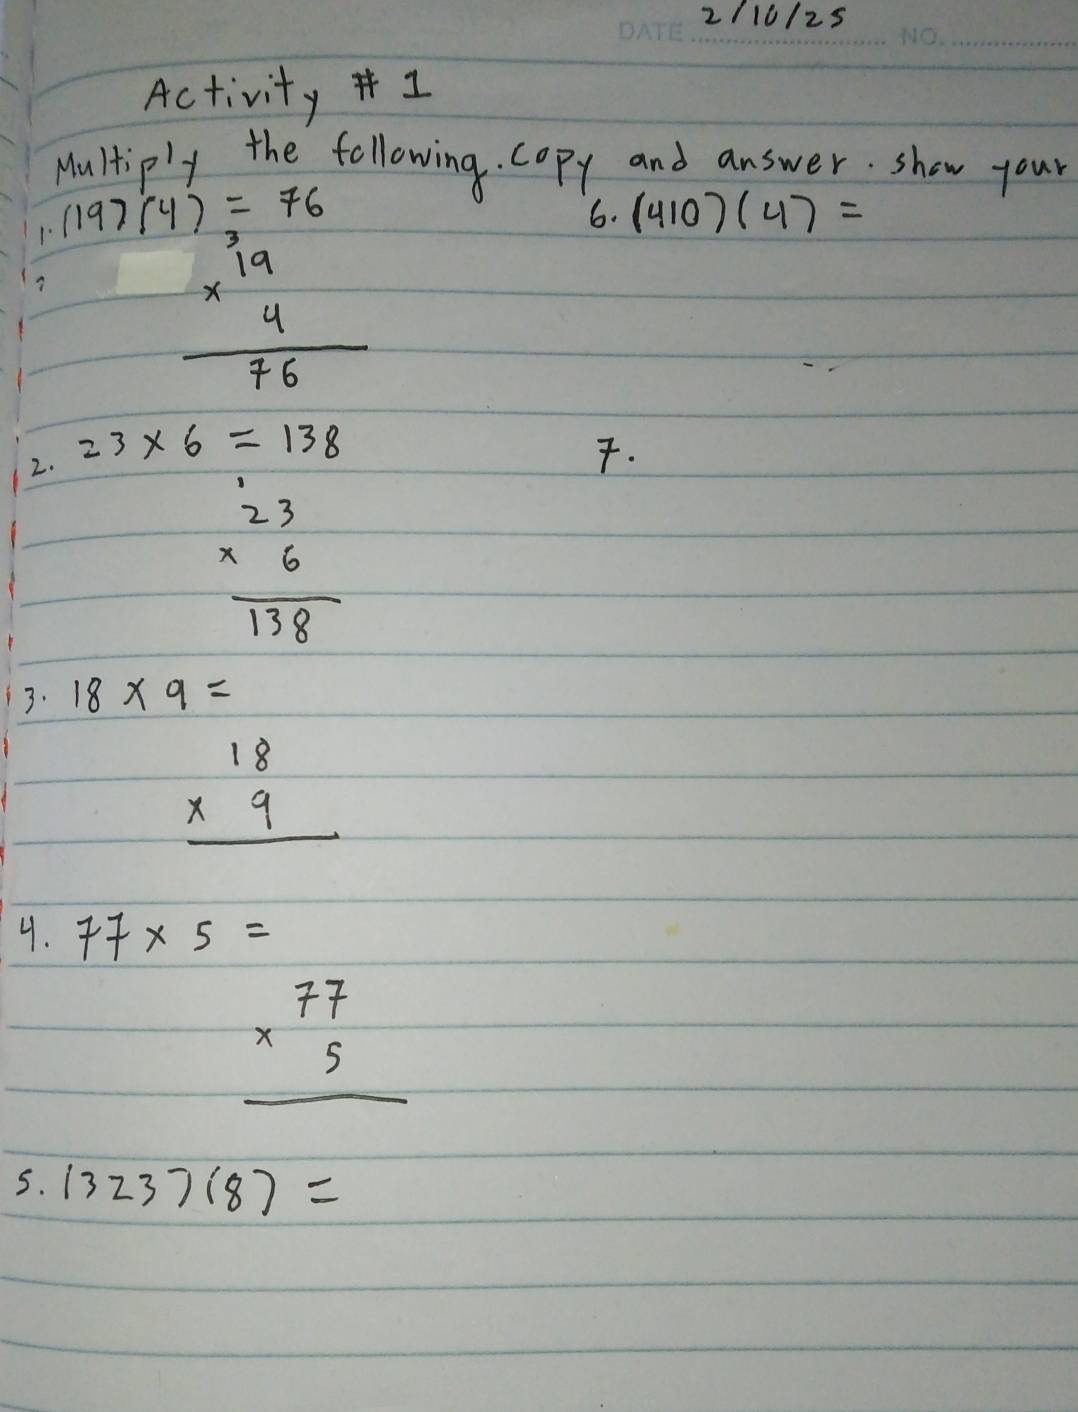 2/10/25
DATE NO.
Activity # 1
Multiply the following. Copy and answer. show your
1. (19)(4) = 76
3
19
×
4
76
2. 23 × 6 = 138
1
23
× 6
138
3. 18 × 9 =
18
× 9
4. 77 × 5 =
77
×
5
5. (323)(8) =
6. (410)(4) =
7.